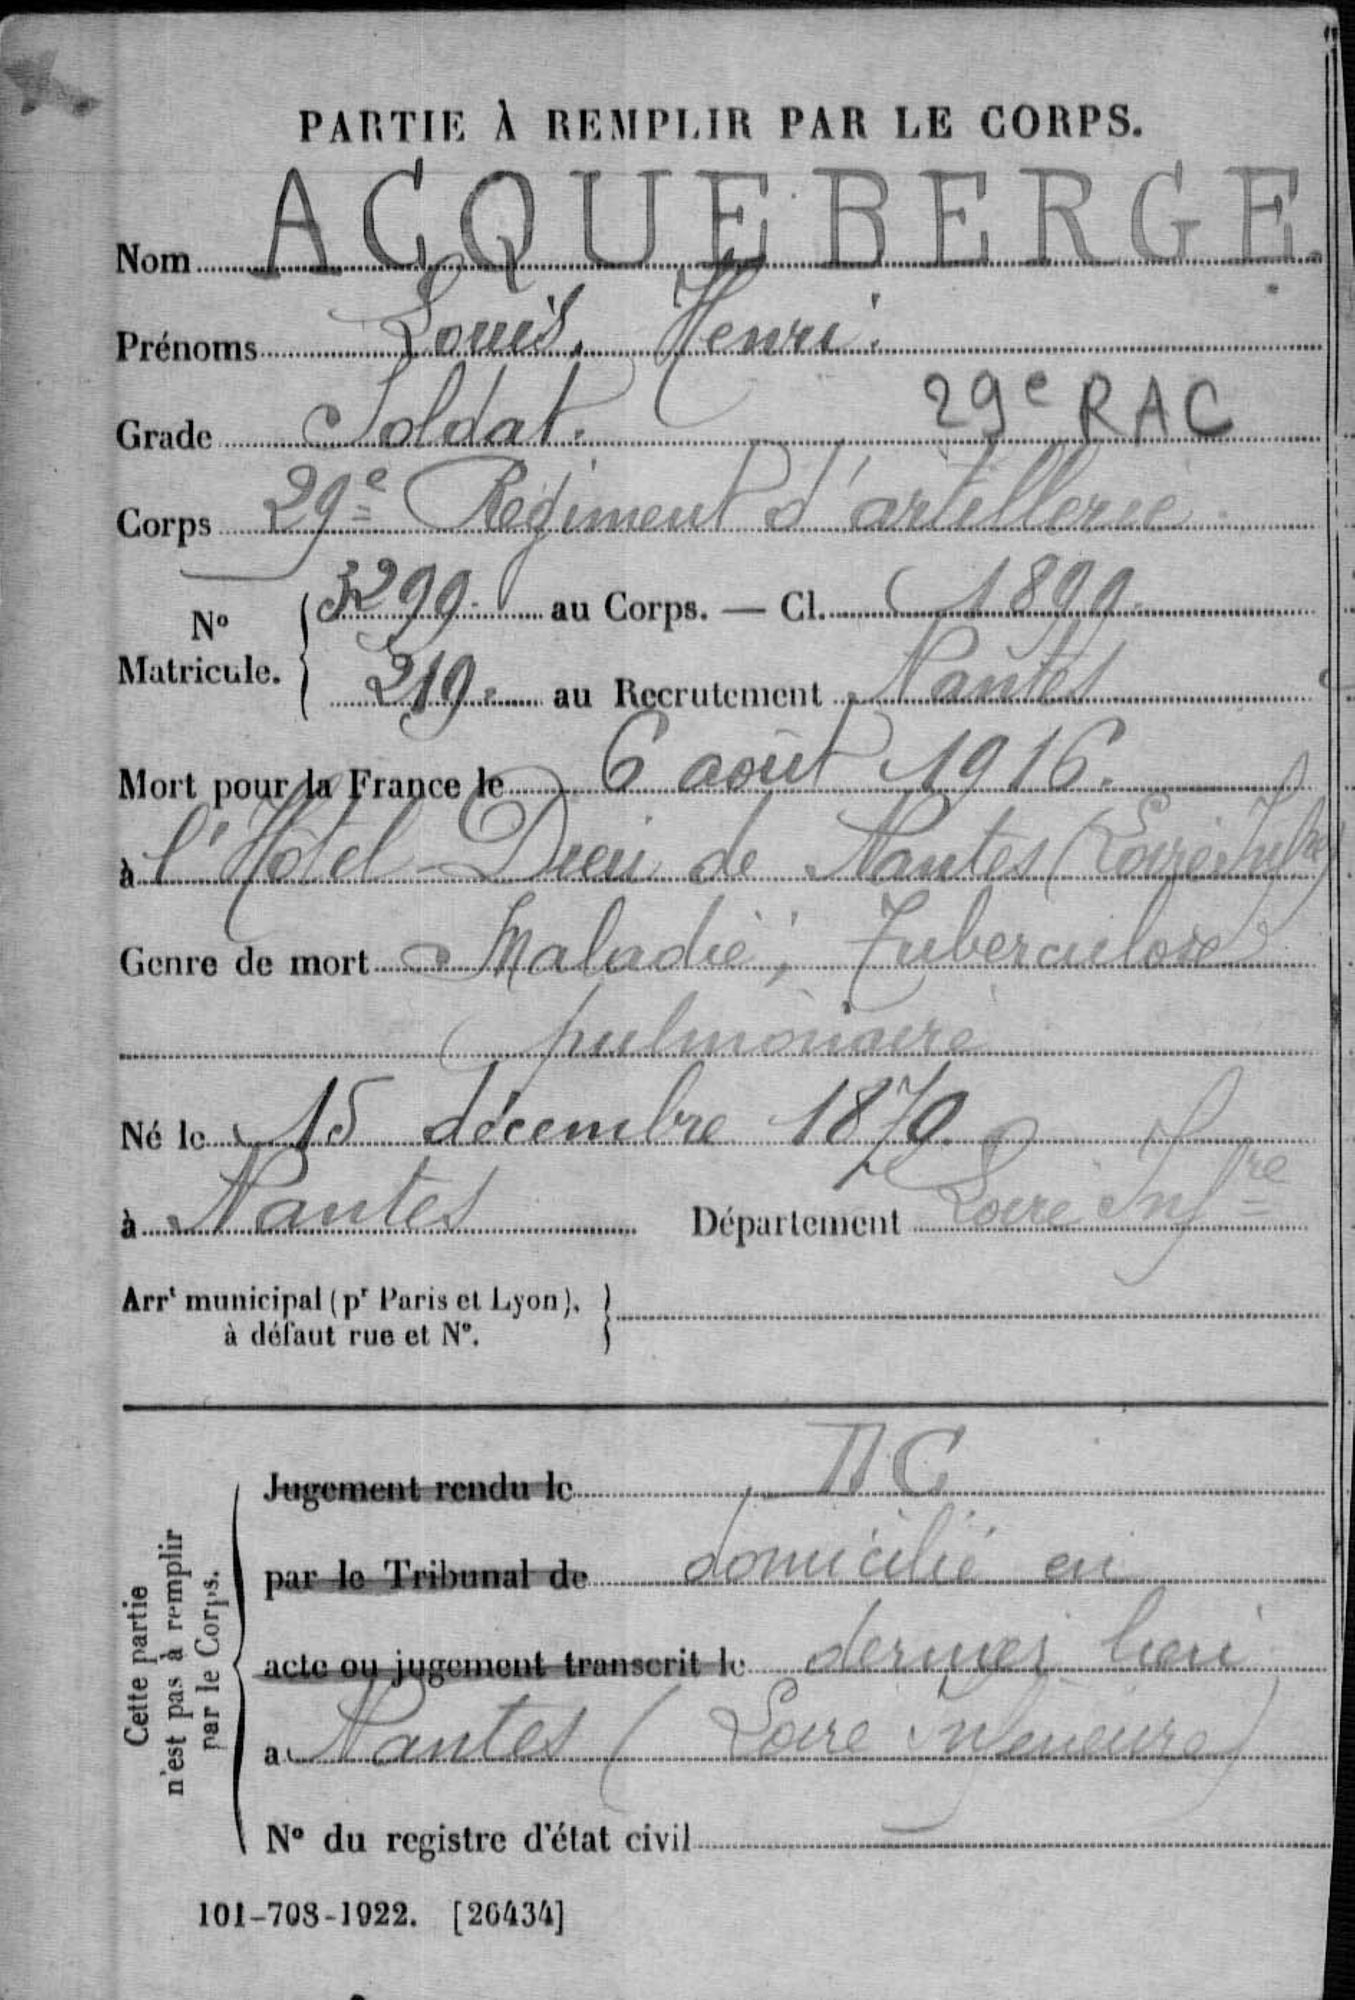 PARTIE À REMPLIR PAR LE CORPS.
Nom ACQUEBERGE.
Prénoms Louis, Henri.
Grade Soldat. 29e RAC
Corps 29e Régiment d'artillerie.
No Matricule. 3299. au Corps. — Cl. 1899.
219. au Recrutement Nantes
Mort pour la France le 6 août 1916.
à l'Hôtel-Dieu de Nantes (Loire Infre)
Genre de mort Maladie, Tuberculose
pulmonaire
Né le 15 décembre 1879.
à Nantes Département Loire Infre
Arrt municipal (pr Paris et Lyon),
à défaut rue et No.
Cette partie
n'est pas à remplir
par le Corps.
Jugement rendu le
par le Tribunal de domicilié en
acte ou jugement transcrit le dernier lieu
a Nantes (Loire Inférieure)
No du registre d'état civil
101-708-1922. [26434]